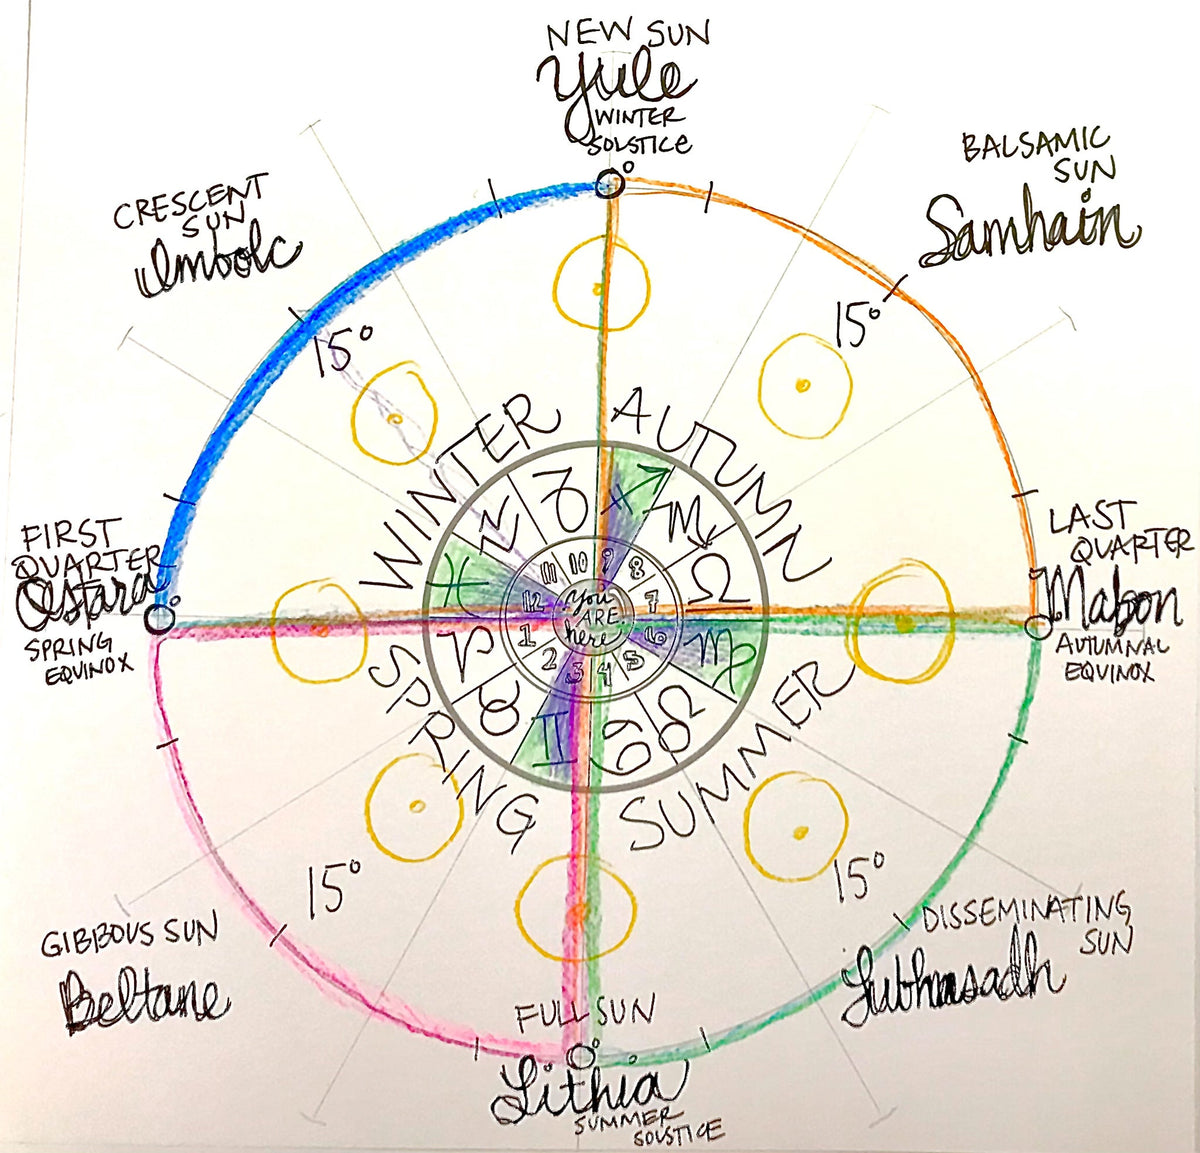 NEW SUN
Yule
WINTER
SOLSTICE
0°
BALSAMIC
SUN
Samhain
15°
CRESCENT
SUN
Imbolc
15°
WINTER
AUTUMN
♑
♐
♒
♏
♓
♎
♈
♍
♉
♌
♊
♋
10
9
11
8
12
7
1
6
2
5
3
4
You
ARE
here
FIRST
QUARTER
Ostara
0°
SPRING
EQUINOX
LAST
QUARTER
Mabon
0°
AUTUMNAL
EQUINOX
SPRING
SUMMER
15°
15°
GIBBOUS SUN
Beltane
DISSEMINATING
SUN
Lubhnasadh
FULL SUN
0°
Lithia
SUMMER
SOLSTICE